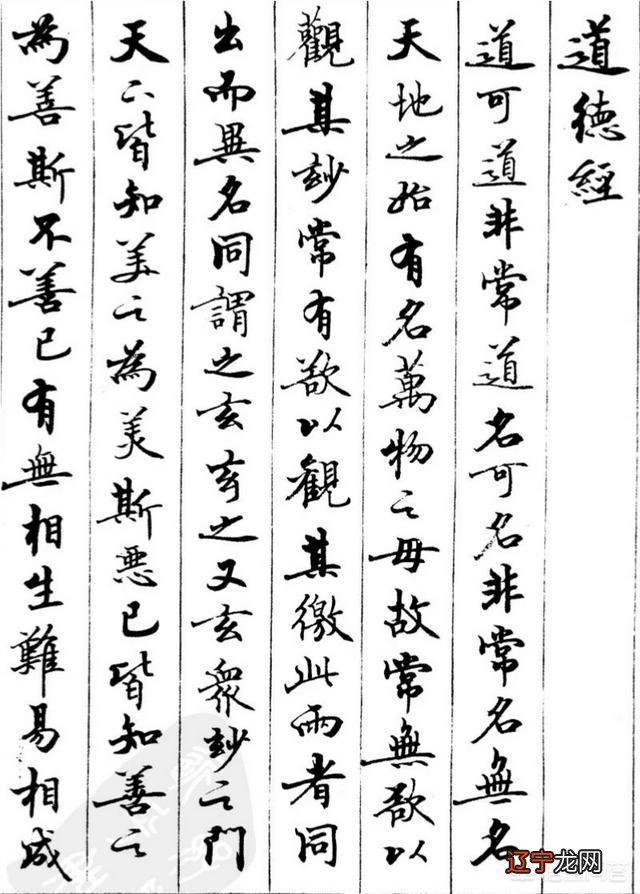 道德經
道可道非常道名可名非常名無名
天地之始有名萬物之母故常無欲以
觀其玅常有欲以觀其徼此兩者同
出而異名同謂之玄玄之又玄眾玅之門
天下皆知美之為美斯惡已皆知善之
為善斯不善已有無相生難易相成
辽宁龙网